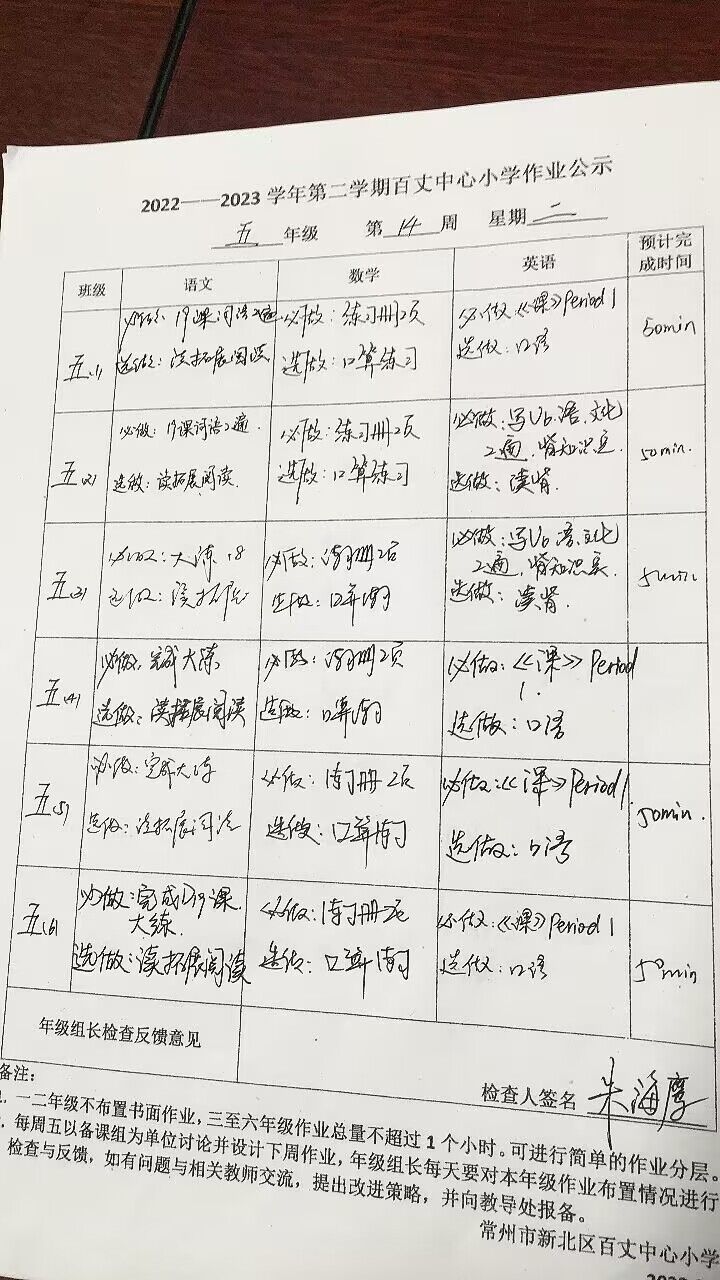 2022——2023 学年第二学期百丈中心小学作业公示
五 年级 第 14 周 星期 二
班级 语文 数学 英语 预计完成时间
五(1)
必做：19课词语2遍
选做：读拓展阅读
必做：练习册2页
选做：口算练习
必做《课》Period 1
选做：口语
50min
五(2)
必做：19课词语2遍
选做：读拓展阅读
必做：练习册2页
选做：口算练习
必做：写U6.语.文化
2遍
选做：读
50min.
五(3)
必做：大练
选做：读拓
必做：练习册2页
选做：口算练习
必做：写U6.语.文化
2遍
选做：读
50min
五(4)
必做：完成大练
选做：读拓展阅读
必做：练习册2页
选做：口算练习
必做：《课》Period
1.
选做：口语
五(5)
必做：完成大练
选做：读拓展阅读
必做：练习册2页
选做：口算练习
必做：《课》Period 1.
选做：口语
50min.
五(6)
必做：完成19课
大练.
选做：读拓展阅读
必做：练习册2页
选做：口算练习
必做：《课》Period 1
选做：口语
50min
年级组长检查反馈意见
检查人签名 朱海
备注：
. 一二年级不布置书面作业，三至六年级作业总量不超过 1 个小时。可进行简单的作业分层。
. 每周五以备课组为单位讨论并设计下周作业，年级组长每天要对本年级作业布置情况进行
检查与反馈，如有问题与相关教师交流，提出改进策略，并向教导处报备。
常州市新北区百丈中心小学